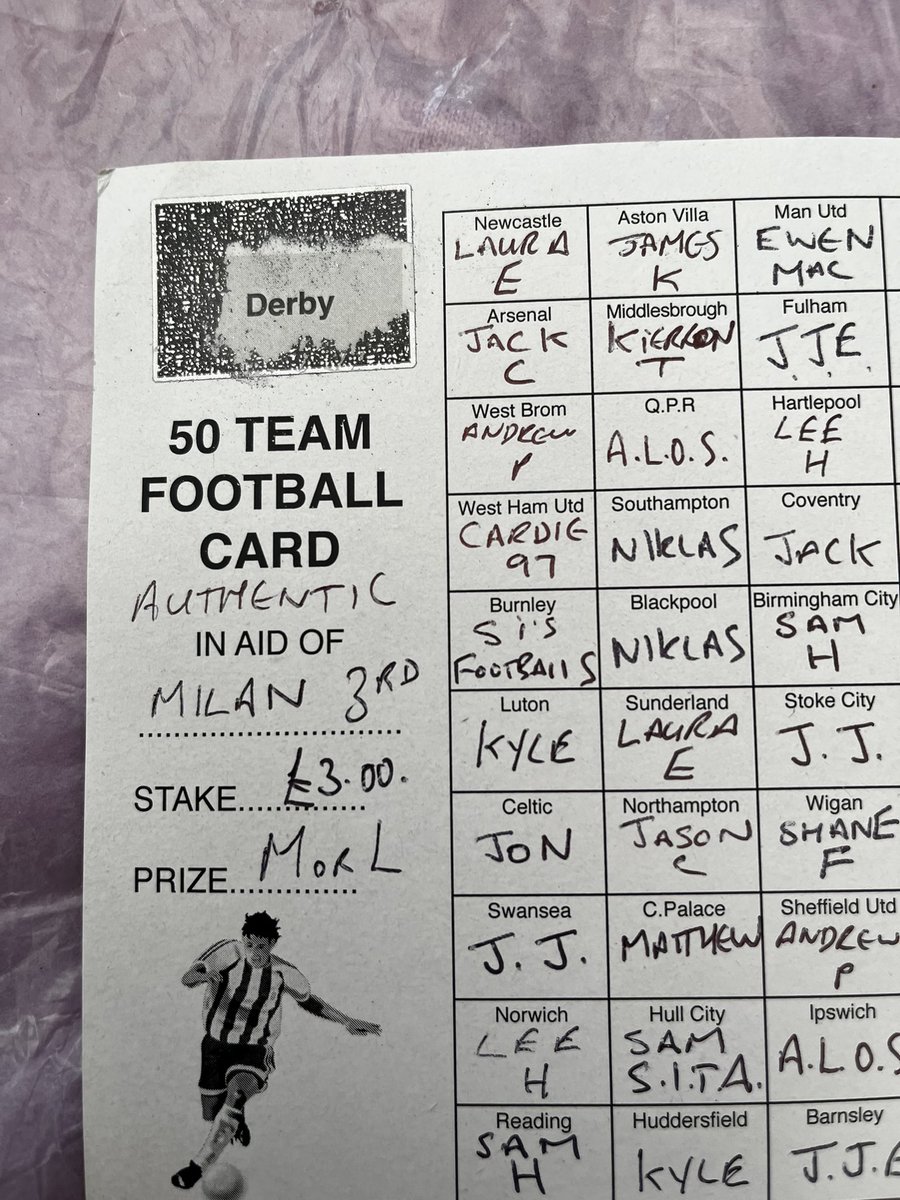 Derby
50 TEAM
FOOTBALL
CARD
AUTHENTIC
IN AID OF
MILAN 3RD
STAKE..... £3.00.
PRIZE..... M or L
Newcastle
LAURA
E
Aston Villa
JAMES
K
Man Utd
EWEN
MAC
Arsenal
JACK
C
Middlesbrough
KIERRON
T
Fulham
J.J.E.
West Brom
ANDREW
P
Q.P.R
A.L.O.S.
Hartlepool
LEE
H
West Ham Utd
CARDIE
97
Southampton
NIKLAS
Coventry
JACK
Burnley
Si'S
FOOTBALLS
Blackpool
NIKLAS
Birmingham City
SAM
H
Luton
KYLE
Sunderland
LAURA
E
Stoke City
J.J.
Celtic
JON
Northampton
JASON
C
Wigan
SHANE
F
Swansea
J.J.
C.Palace
MATTHEW
Sheffield Utd
ANDREW
P
Norwich
LEE
H
Hull City
SAM
S.I.T.A.
Ipswich
A.L.O.S
Reading
SAM
H
Huddersfield
KYLE
Barnsley
J.J.E